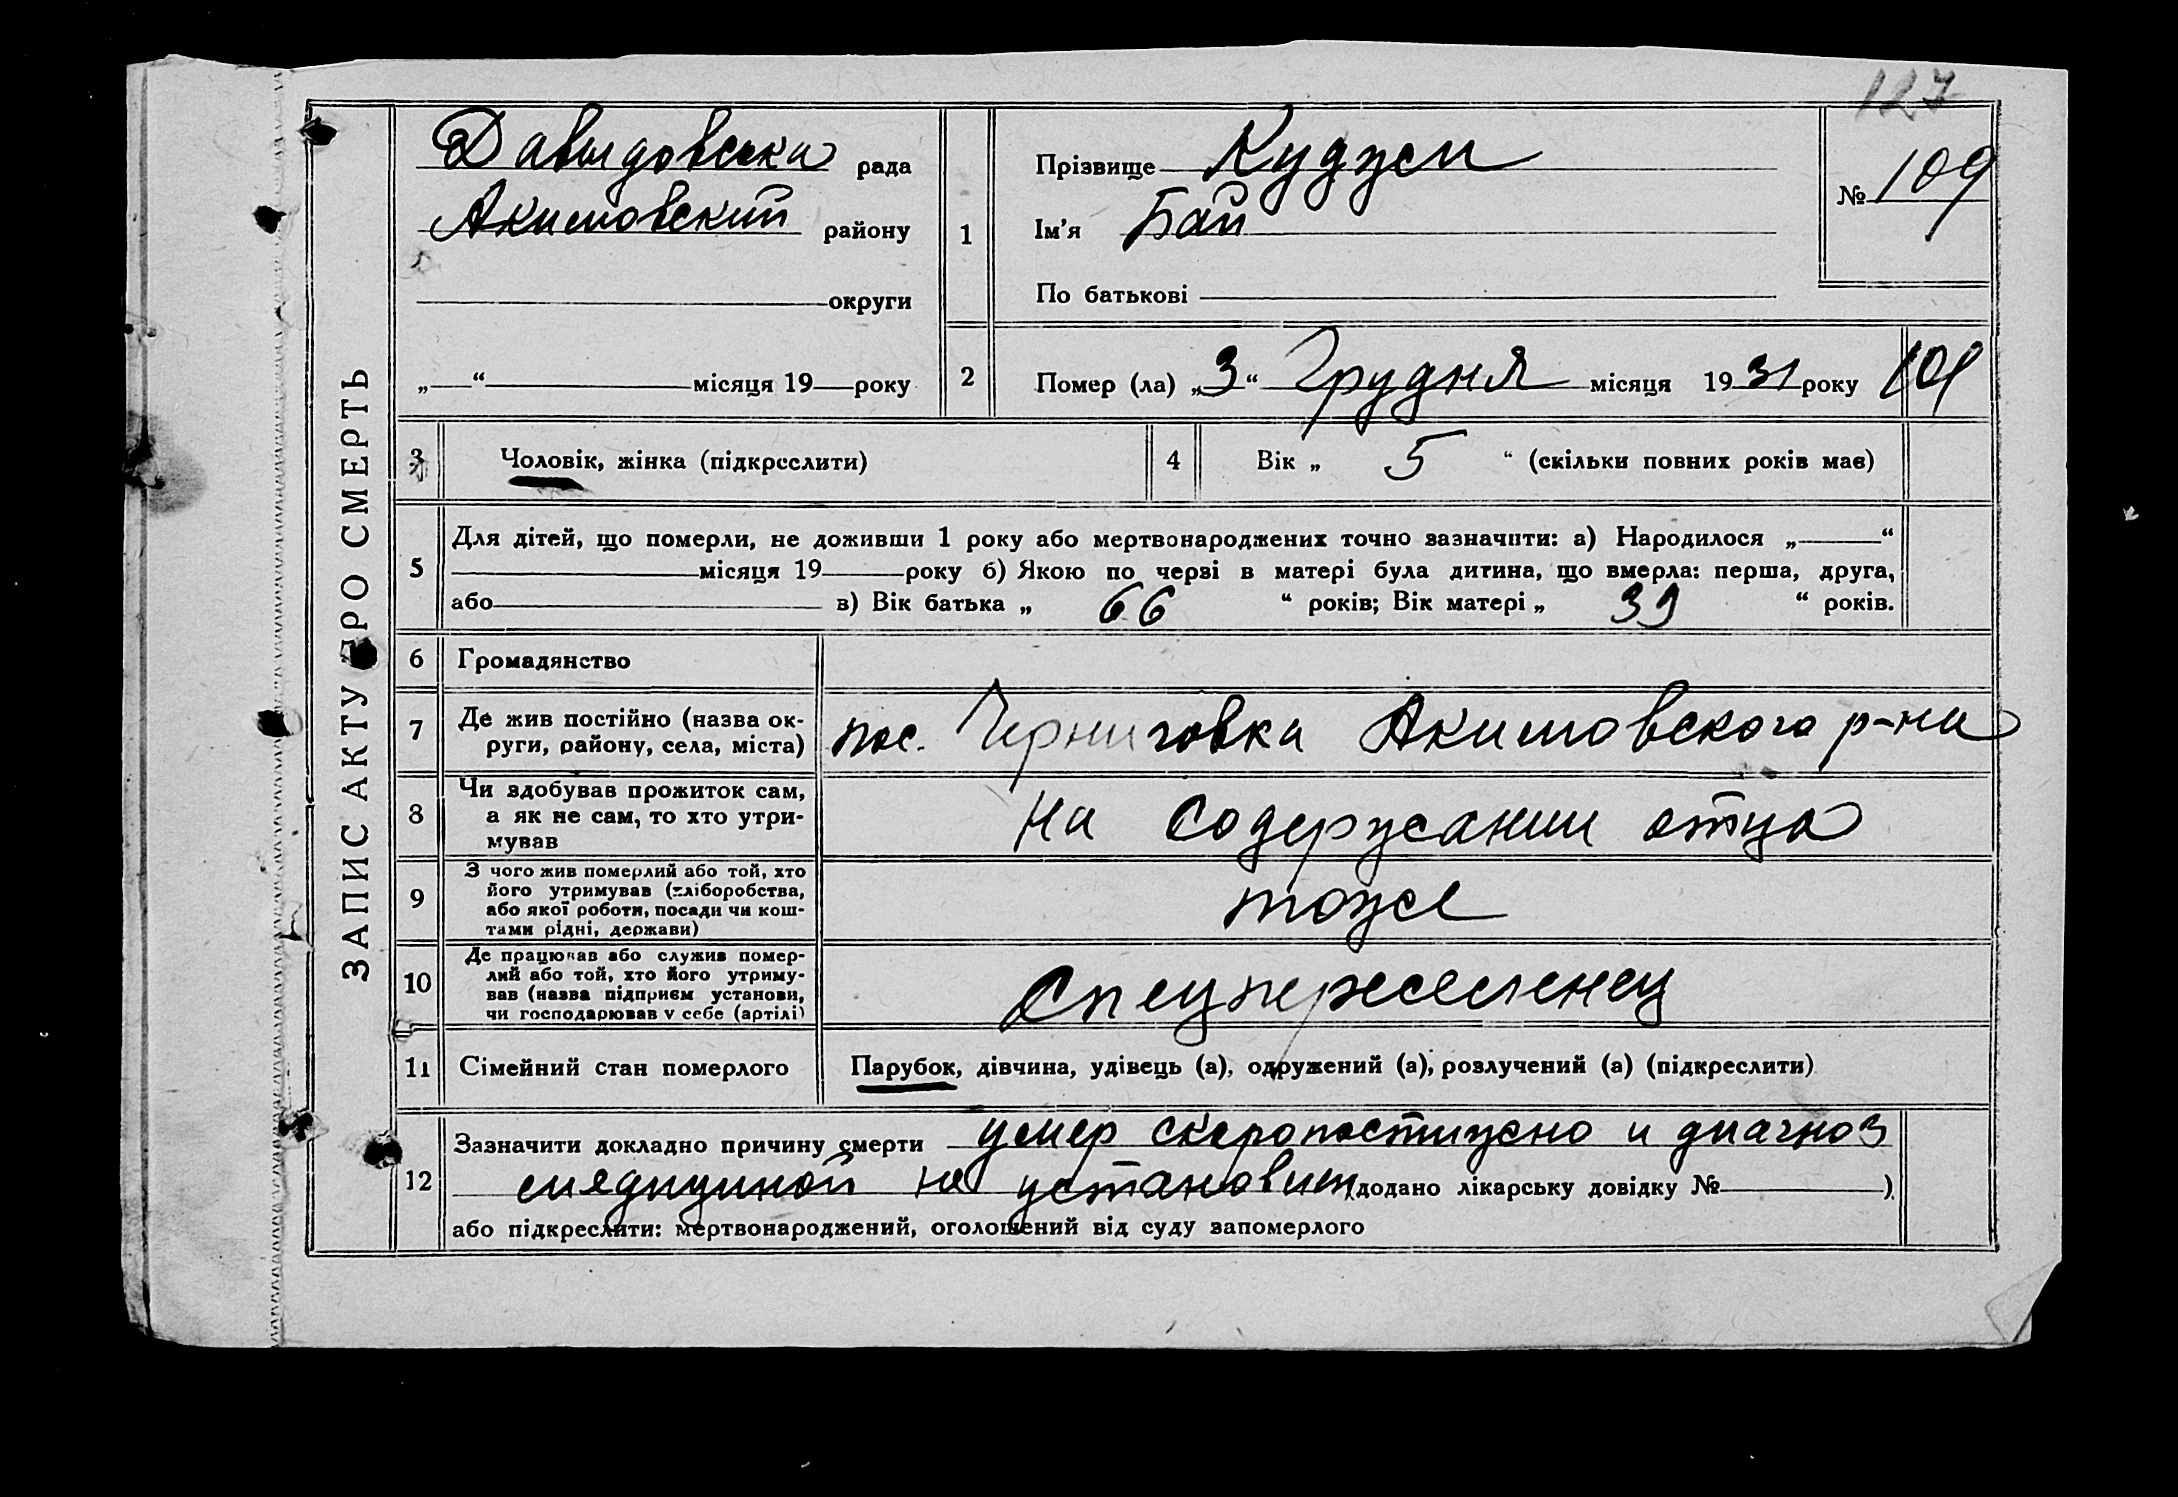 127
ЗАПИС АКТУ ПРО СМЕРТЬ
Давыдовска рада
Акимовский району
округи
„ “ місяця 19 року
1
Прізвище Куджи
Ім'я Бай
По батькові
№ 109
2
Помер (ла) „3“ Грудня місяця 1931 року
3 Чоловік, жінка (підкреслити)
4 Вік „ 5 “ (скільки повних років має)
5 Для дітей, що померли, не доживши 1 року або мертвонароджених точно зазначити: а) Народилося „ “
місяця 19 року б) Якою по черзі в матері була дитина, що вмерла: перша, друга,
або в) Вік батька „ 66 “ років; Вік матері „ 39 “ років.
6 Громадянство
7 Де жив постійно (назва ок-
руги, району, села, міста)
пос. Черниговка Акимовского р-на
8 Чи здобував прожиток сам,
а як не сам, то хто утри-
мував
на содержании отца
9 З чого жив померлий або той, хто
його утримував (хліборобства,
або якої роботи, посади чи кош-
тами рідні, держави)
тоже
10 Де працював або служив помер-
лий або той, хто його утриму-
вав (назва підприєм установи,
чи господарював у себе (артілі)
Спецпереселенец
11 Сімейний стан померлого
Парубок, дівчина, удівець (а), одружений (а), розлучений (а) (підкреслити)
12 Зазначити докладно причину смерти умер скоропостижно и диагноз
медициной не установит (додано лікарську довідку № )
або підкреслити: мертвонароджений, оголошений від суду запомерлого